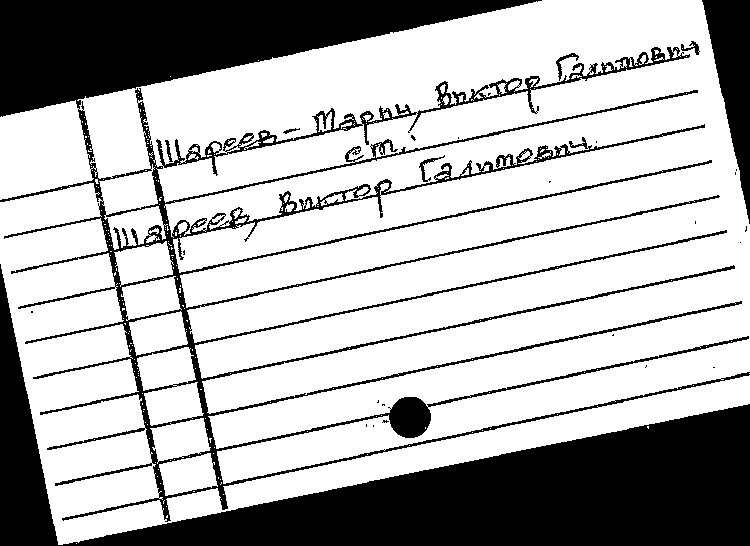 Шареев-Марии, Виктор Галимович
см.:
Шареев, Виктор Галимович.